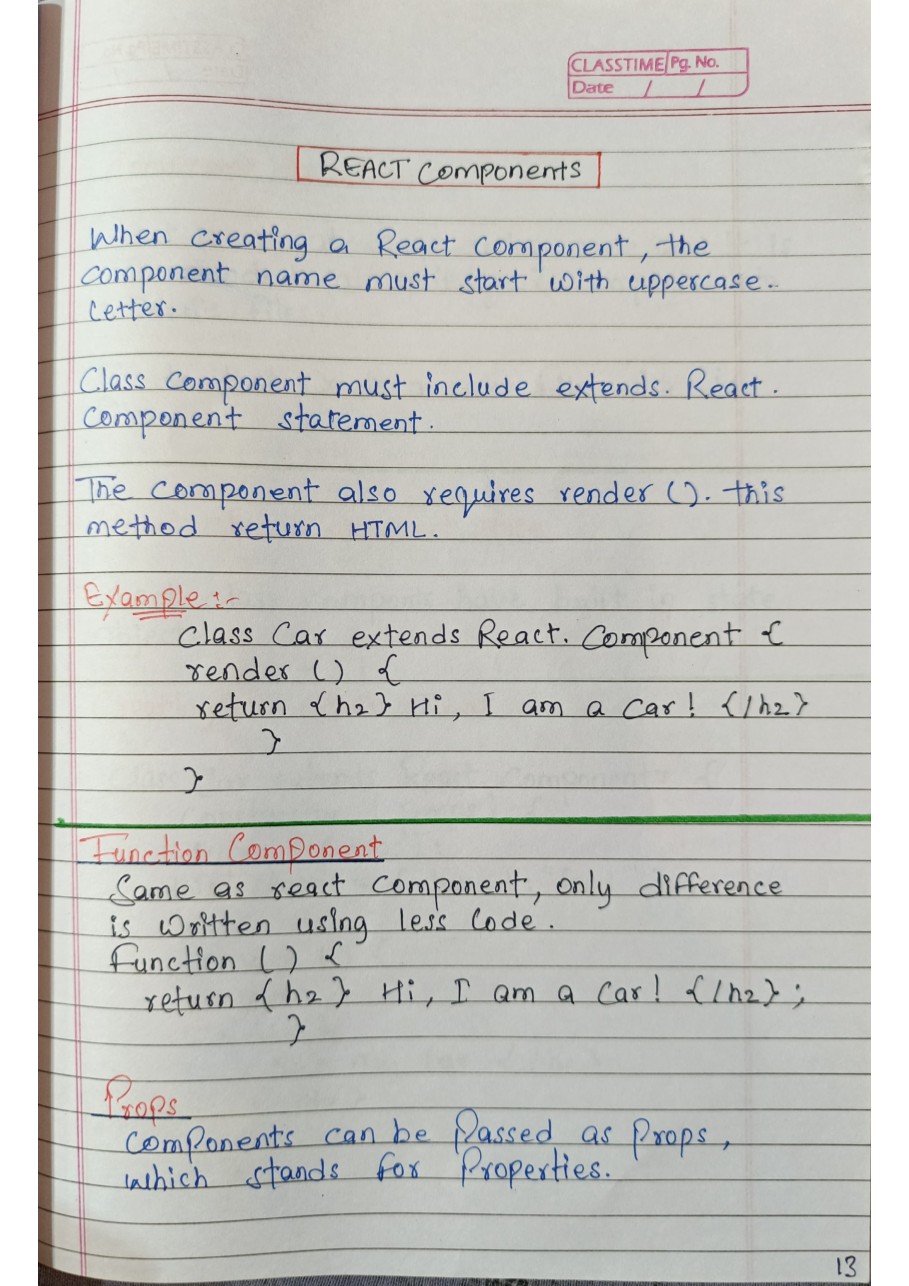 CLASSTIME Pg. No.
Date / /
REACT Components
When creating a React component, the
component name must start with uppercase.
Letter.
Class component must include extends. React.
component statement.
The component also requires render (). this
method return HTML.
Example :-
Class Car extends React. Component {
render () {
return {h2} Hi, I am a car! {/h2}
}
}
Function Component
Same as react component, only difference
is written using less code.
Function () {
return {h2} Hi, I am a car! {/h2};
}
Props
components can be Passed as Props,
which stands for Properties.
13